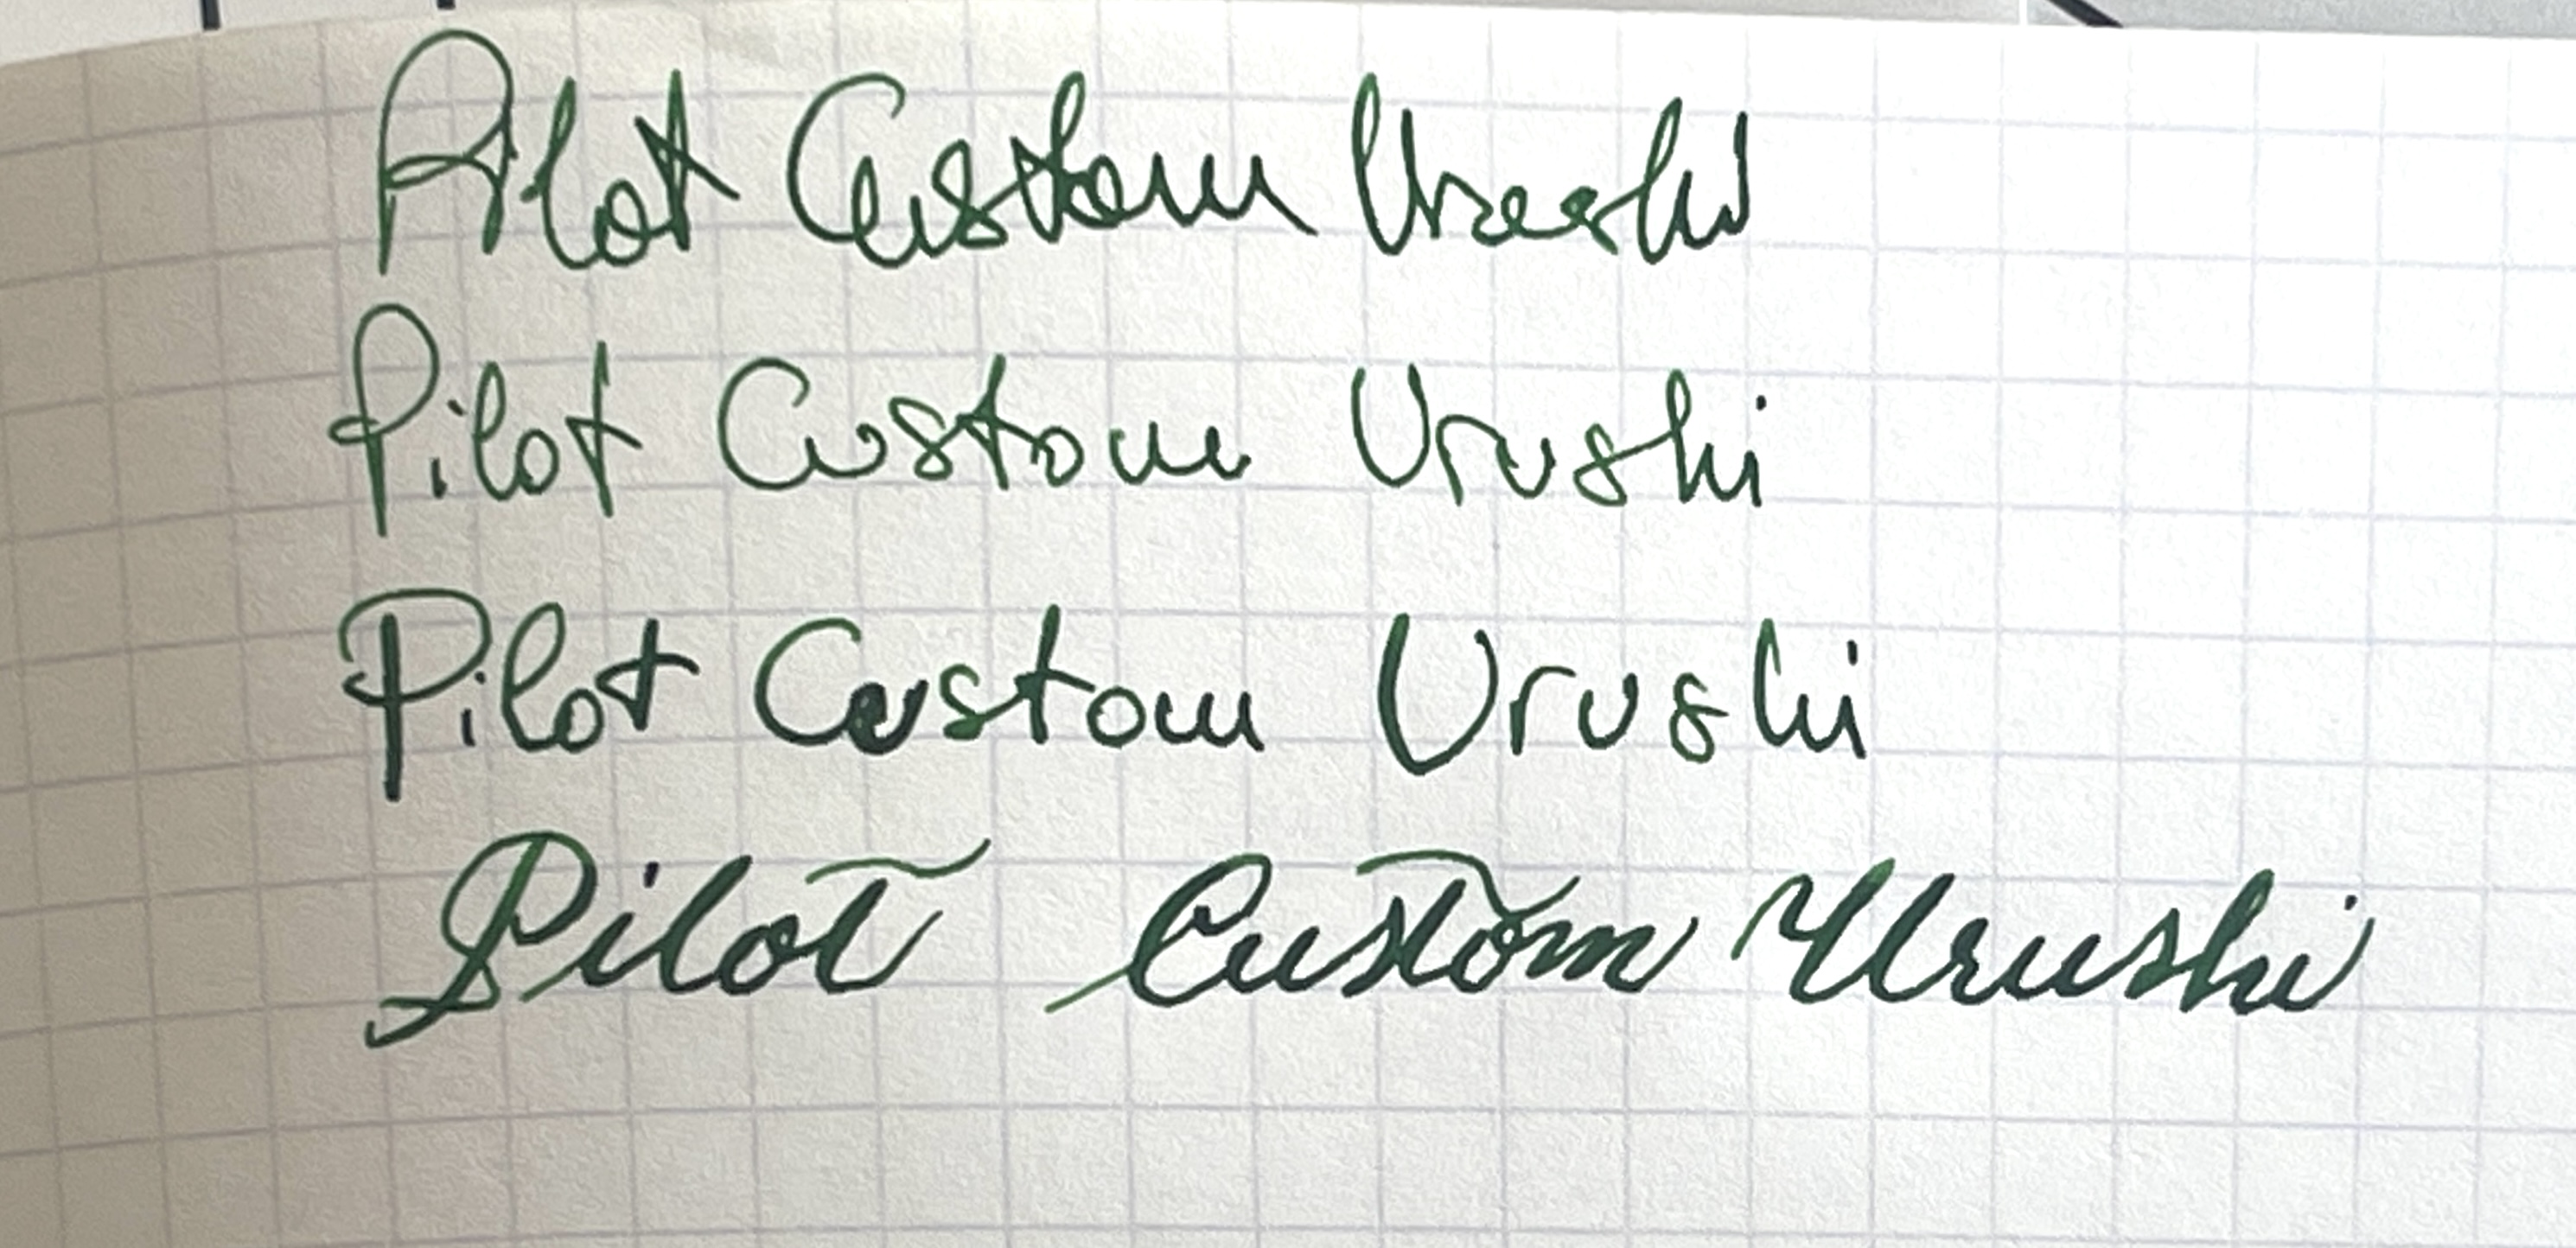 Pilot Custom Urushi
Pilot Custom Urushi
Pilot Custom Urushi
Pilot Custom Urushi